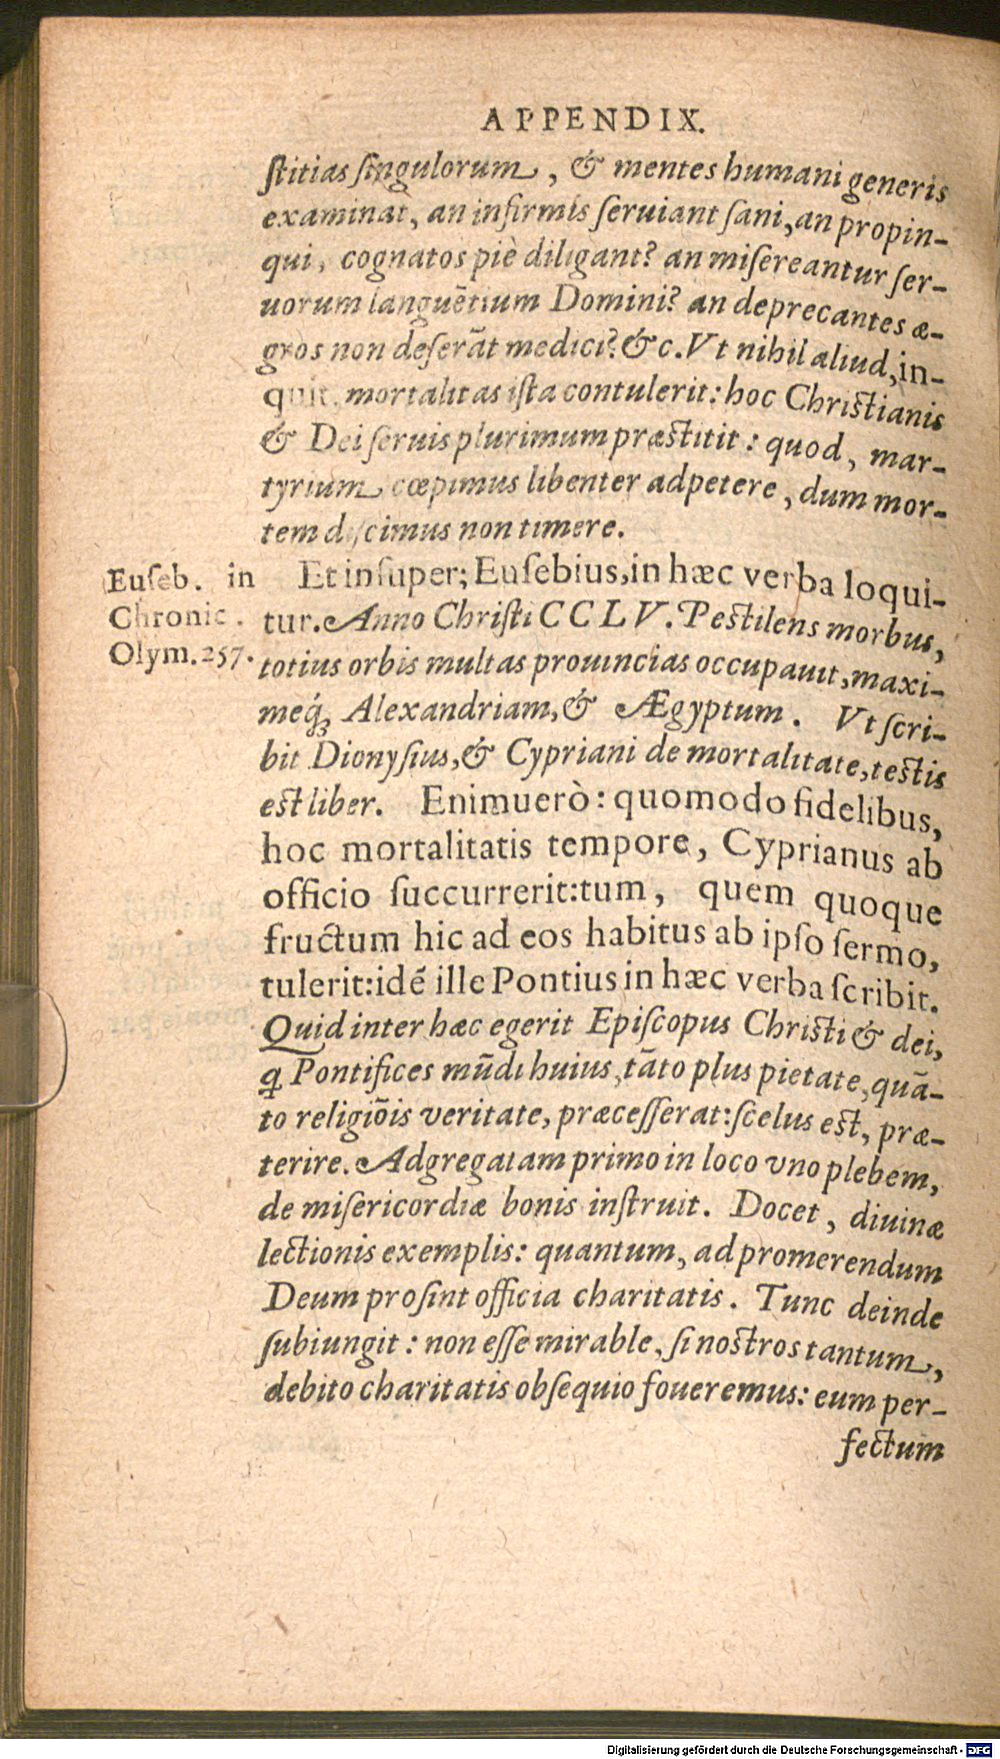 APPENDIX.
ſtitias ſingulorum, & mentes humani generis
examinat, an infirmis ſeruiant ſani, an propin-
qui, cognatos piè diligant? an miſereantur ſer-
uorum languẽtium Domini? an deprecantes æ-
gros non deſerãt medici? &c. Vt nihil aliud, in-
quit, mortalitas iſta contulerit: hoc Chriſtianis
& Dei ſeruis plurimum præſtitit: quod, mar-
tyrium cœpimus libenter adpetere, dum mor-
tem diſcimus non timere.
Et inſuper; Euſebius, in hæc verba loqui-
tur. Anno Chriſti CCLV. Peſtilens morbus,
totius orbis multas prouincias occupauit, maxi-
meq́; Alexandriam, & Ægyptum. Vt ſcri-
bit Dionyſius, & Cypriani de mortalitate, teſtis
eſt liber. Enimuerò: quomodo fidelibus,
hoc mortalitatis tempore, Cyprianus ab
officio ſuccurrerit: tum, quem quoque
fructum hic ad eos habitus ab ipſo ſermo,
tulerit: idẽ ille Pontius in hæc verba ſcribit.
Quid inter hæc egerit Epiſcopus Chriſti & dei,
ꝗ Pontifices mũdi huius, tãto plus pietate, quã-
to religiõis veritate, præceſſerat: ſcelus eſt, præ-
terire. Adgregatam primo in loco vno plebem,
de miſericordiæ bonis inſtruit. Docet, diuinæ
lectionis exemplis: quantum, ad promerendum
Deum proſint officia charitatis. Tunc deinde
ſubiungit: non eſſe mirable, ſi noſtros tantum,
debito charitatis obſequio foueremus: eum per-
fectum
Euſeb. in
Chronic.
Olym. 257.
Digitalisierung gefördert durch die Deutsche Forschungsgemeinschaft - DFG